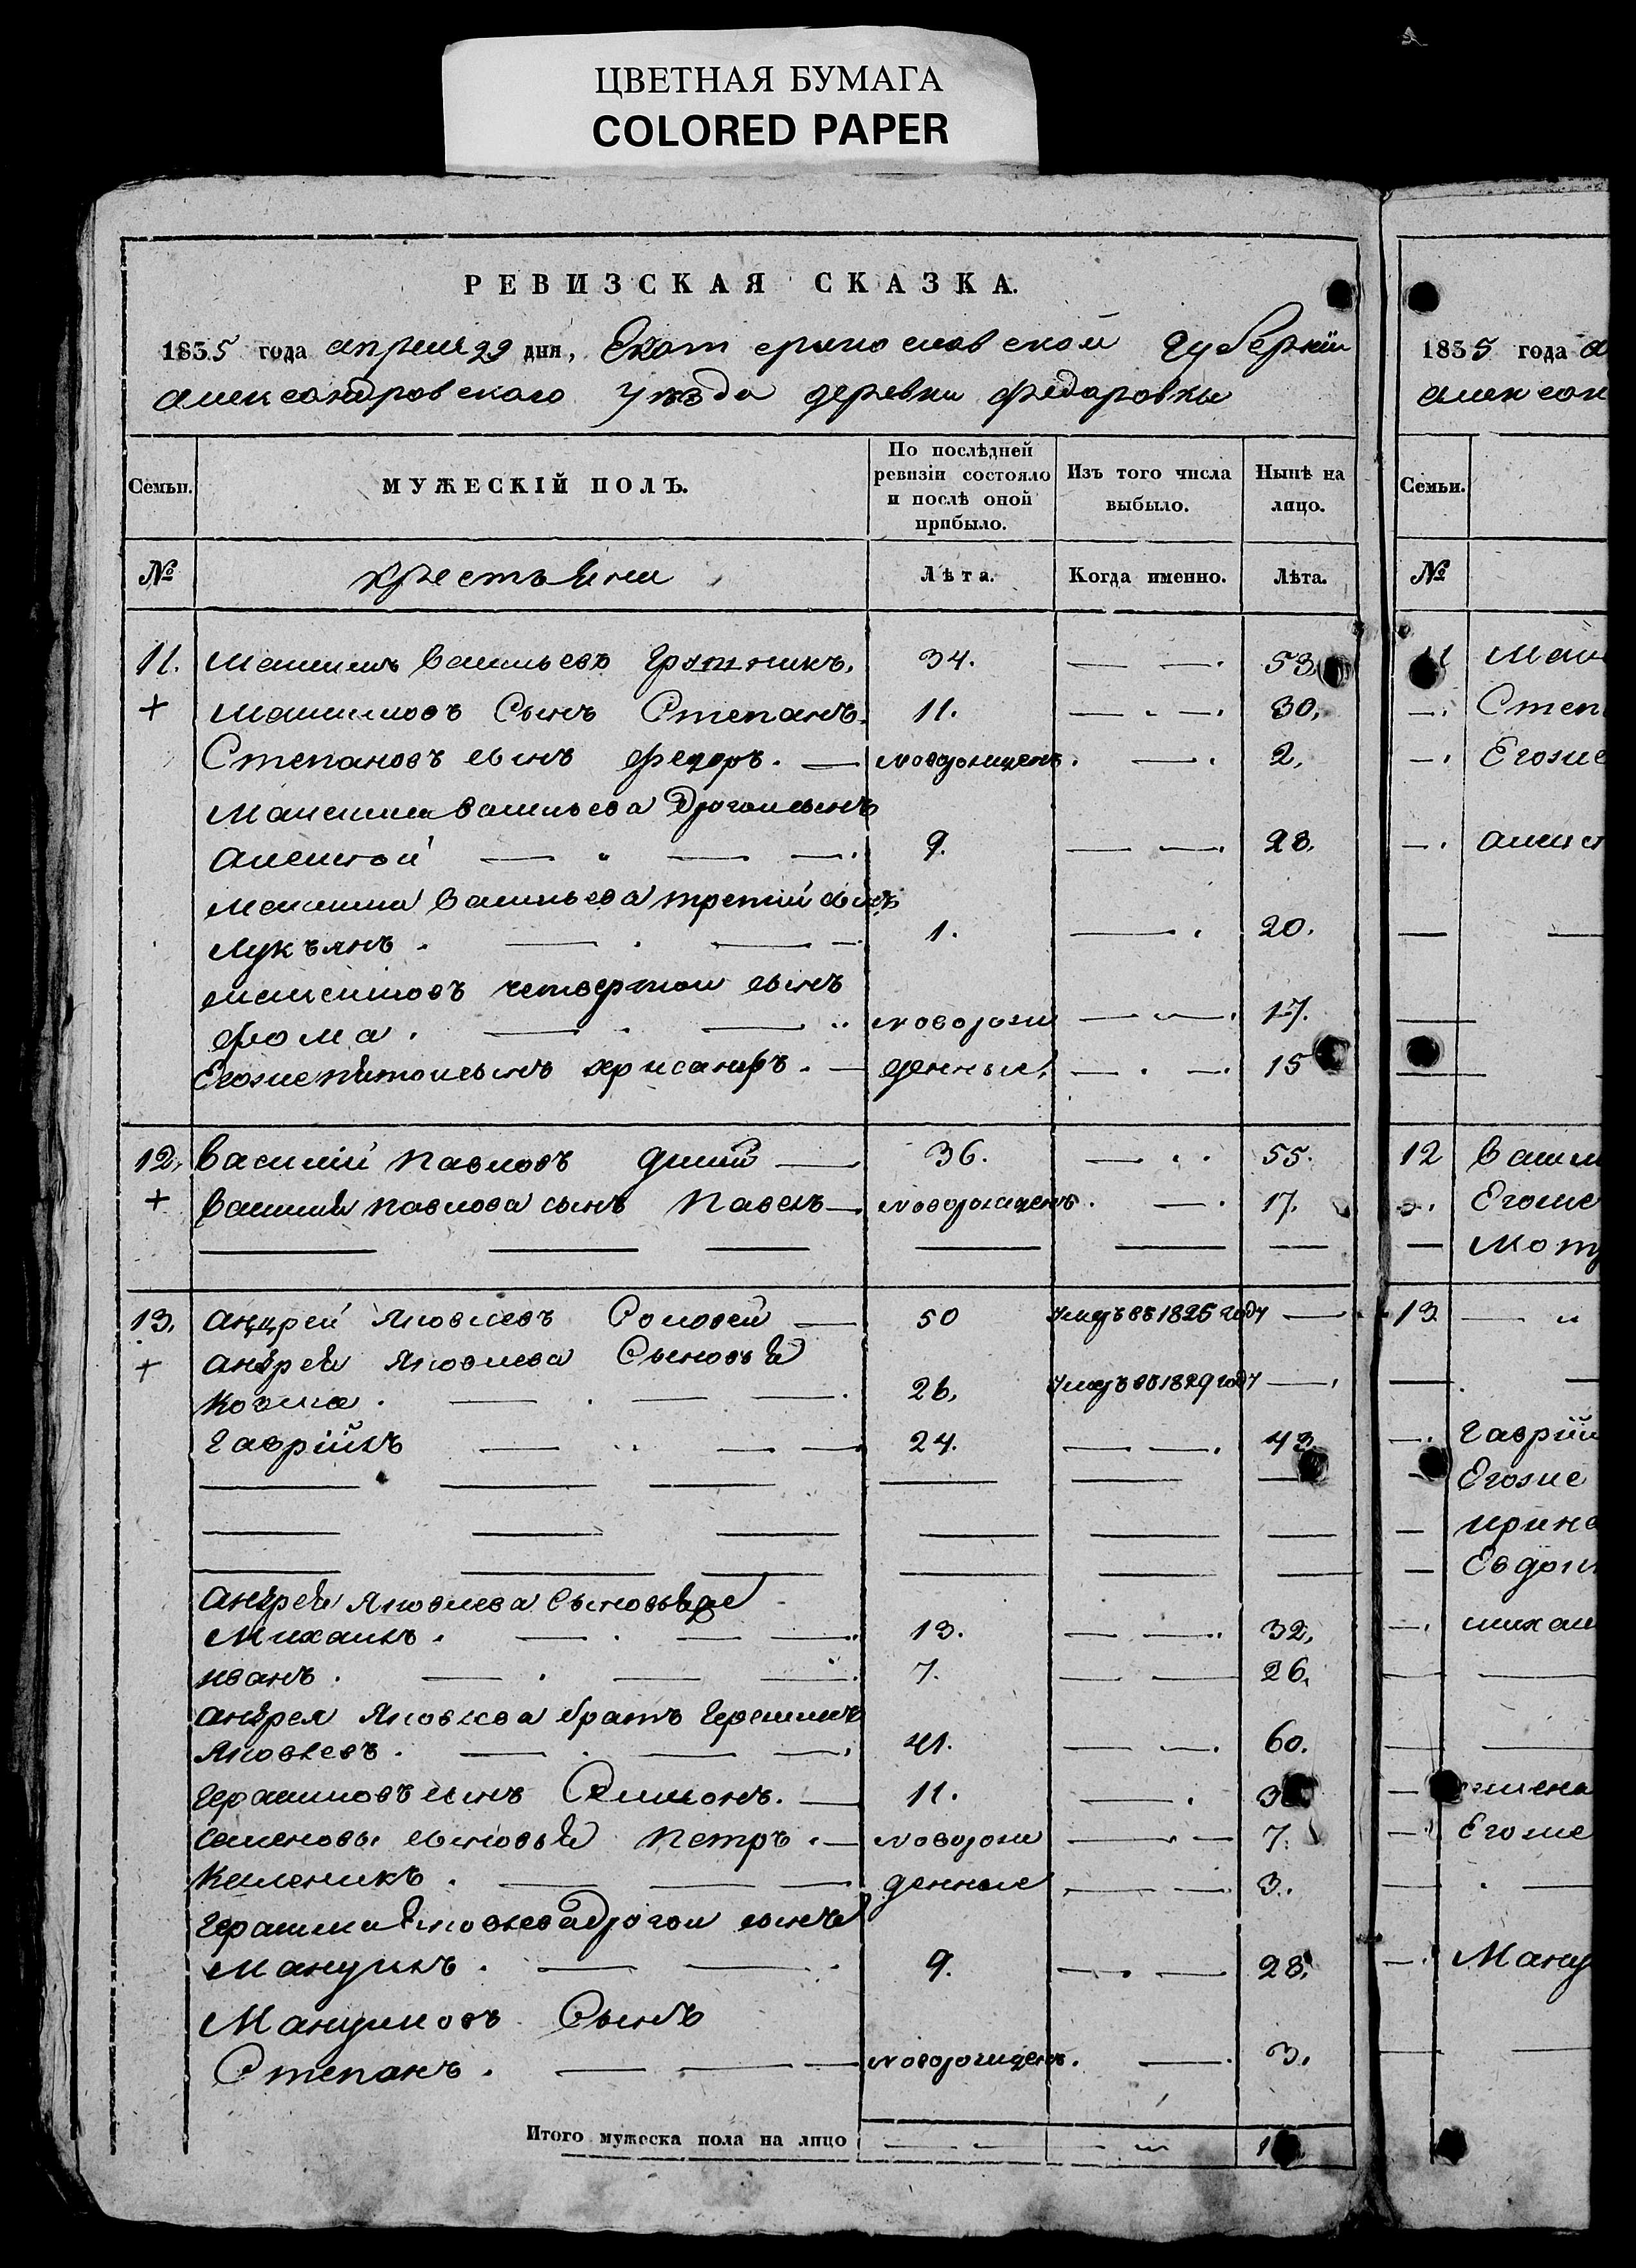 ЦВЕТНАЯ БУМАГА
COLORED PAPER
РЕВИЗСКАЯ СКАЗКА.
1835 года апреля 29 дня, Екатеринославской губернiи
александровского уѣзда деревни федаровки
Семьи. МУЖЕСКІЙ ПОЛЪ. По послѣдней ревизіи состояло и послѣ оной прибыло. Изъ того числа выбыло. Нынѣ на лицо.
№ крестьяни Лѣта. Когда именно. Лѣта.
11. Максимъ васильевъ 34. 53
+ Максимовъ Сынъ Степанъ. 11. 30.
Степановъ сынъ федоръ. новорожденъ. 2.
Максима васильева другои сынъ
алексѣй 9. 28.
Максима васильева третий сынъ
Лукъянъ. 1. 20.
максимовъ четвертои сынъ
фома. новорож 17.
Егоже пятои сынъ хрисанфъ. денные. 15
12. Василий павловъ 36. 55.
+ Василия павлова сынъ Павелъ новорожденъ. 17.
13. андрей Яковлевъ Соловей 50 умеръ въ 1826 году
+ андрея Яковлева Сыновья
Козма. 26. умеръ въ 1829 году
гаврiилъ 24. 43
андрея Яковлева Сыновья
Михаилъ. 13. 32.
иванъ. 7. 26.
андрея Яковлева братъ герасимъ
Яковлевъ. 41. 60.
герасимовъ сынъ 11. 3
семеновы сыновья петръ. новорож 7.
каленикъ. денные 3.
герасима Яковлева другои сынъ
Мануилъ. 9. 28.
Мануиловъ Сынъ
Степанъ. новорожденъ. 3.
Итого мужеска пола на лицо
1835 года а
алексан
Семьи.
№
11 Мак
Степ
Егоже
алекс
12 Васил
Егоже
Мот
13
гаврiи
Егоже
ирина
Евдок
михаи
Егоже
Ману